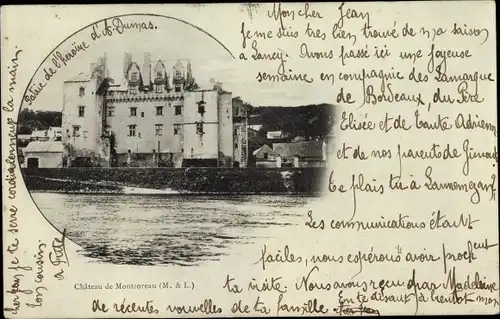 Patrie de l'héroïne d'A. Dumas.
Mon cher Jean
je me suis très bien trouvé de ma saison
à Lancy. Nous passé ici une joyeuse
semaine en compagnie des Lamarque
de Bordeaux, du Père
Elisée et de tante Adrienne
et de nos parents de
te plais tu à Lannemezan?
Les communications étant
faciles, nous espérons avoir
ta visite. Nous avons reçu par Madeleine
de récentes nouvelles de ta famille
En te disant à bientôt mon
cher Jean je te serre cordialement la main.
ton cousin
Château de Montsoreau (M. & L.)